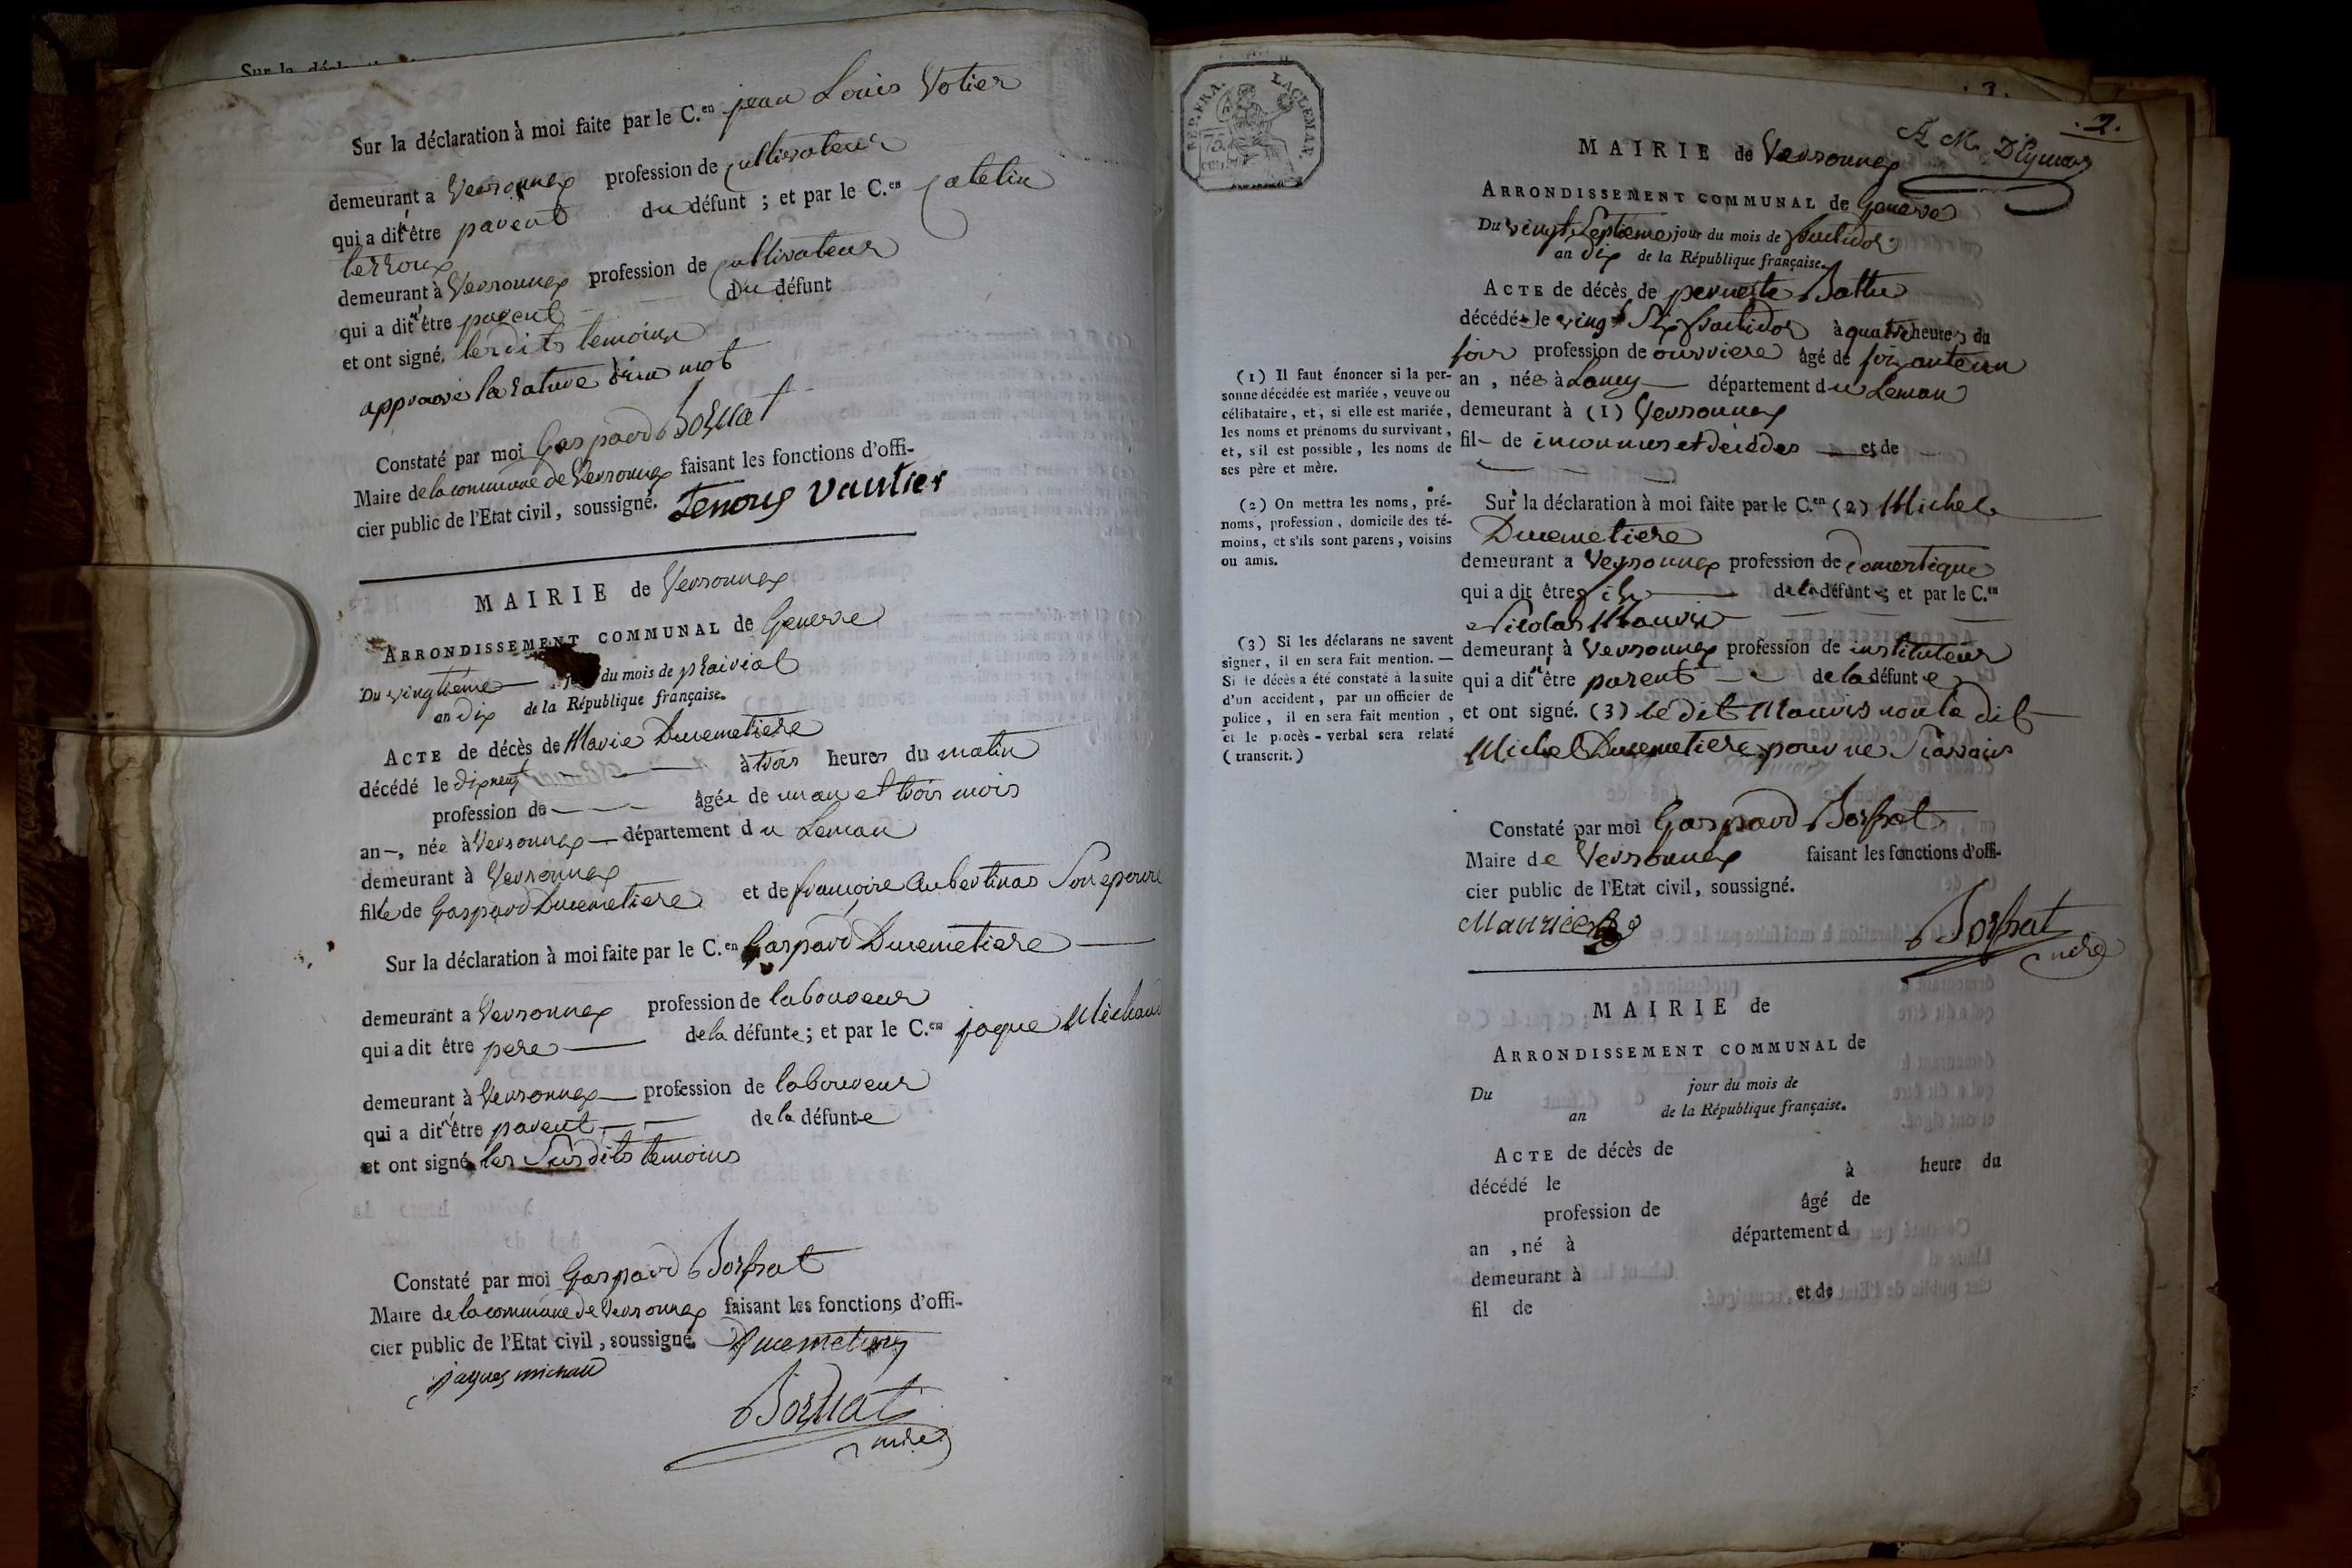 Sur la déclaration à moi faite par le C.en jean Louis Votier
demeurant a Versonnex profession de Cultivateur
qui a dit être parent du défunt ; et par le C.en Catelin
terroux
demeurant à Versonnex profession de Cultivateur
qui a dit être parent du défunt
et ont signé. lesdits temoins
approuvé la rature d'un mot
Constaté par moi Gaspard Borssat
Maire de la commune de Versonnex faisant les fonctions d'offi-
cier public de l'Etat civil, soussigné. Terroux vautier
MAIRIE de Versonnex
ARRONDISSEMENT COMMUNAL de Geneve
Du vingtieme du mois de prairial
an dix de la République française.
ACTE de décès de Marie Ducemetiere
décédé le dixneuf à trois heures du matin
profession de âgée de un an et trois mois
an, née à Versonnex département du Leman
demeurant à Versonnex
fille de Gaspard Ducemetiere et de françoise aubertinas Son epouse
Sur la déclaration à moi faite par le C.en Gaspard Ducemetiere
demeurant a Versonnex profession de laboureur
qui a dit être pere de la défunte ; et par le C.en jaque Michaud
demeurant à Versonnex profession de laboureur
qui a dit être parent de la défunte
et ont signé les Susdits temoins
Constaté par moi Gaspard Borssat
Maire de la commune de Versonnex faisant les fonctions d'offi-
cier public de l'Etat civil, soussigné. Ducemetiere
jaques michau
Borssat
mire
REP. FRA. LAC LEMAN.
75
cent
2.
MAIRIE de Versonnex
ARRONDISSEMENT COMMUNAL de Geneve
Du vingt Septieme jour du mois de fructidor
an dix de la République française.
ACTE de décès de pernette Battu
décédé le vingt Six fructidor à quatre heures du
soir profession de ouvriere âgé de soixante un
an , née à Lancy département du Leman
demeurant à (1) Versonnex
fil de inconnus et décédés et de
Sur la déclaration à moi faite par le C.en (2) Michel
Ducemetiere
demeurant a Versonnex profession de domestique
qui a dit être fils de la défunte ; et par le C.en
Nicolas Mauris
demeurant à Versonnex profession de instituteur
qui a dit être parent de la défunte
et ont signé. (3) le dit Mauris non le dit
Michel Ducemetiere pour ne Scavoir
Constaté par moi Gaspard Borssat
Maire de Versonnex faisant les fonctions d'offi-
cier public de l'Etat civil, soussigné.
Borssat
mire
(1) Il faut énoncer si la per-
sonne décédée est mariée, veuve ou
célibataire, et, si elle est mariée,
les noms et prénoms du survivant,
et, s'il est possible, les noms de
ses père et mère.
(2) On mettra les noms, pré-
noms, profession, domicile des té-
moins, et s'ils sont parens, voisins
ou amis.
(3) Si les déclarans ne savent
signer, il en sera fait mention. —
Si le décès a été constaté à la suite
d'un accident, par un officier de
police, il en sera fait mention,
et le procès-verbal sera relaté
(transcrit.)
MAIRIE de
ARRONDISSEMENT COMMUNAL de
Du jour du mois de
an de la République française.
ACTE de décès de
décédé le à heure du
profession de âgé de
an , né à département d
demeurant à
fil de et de